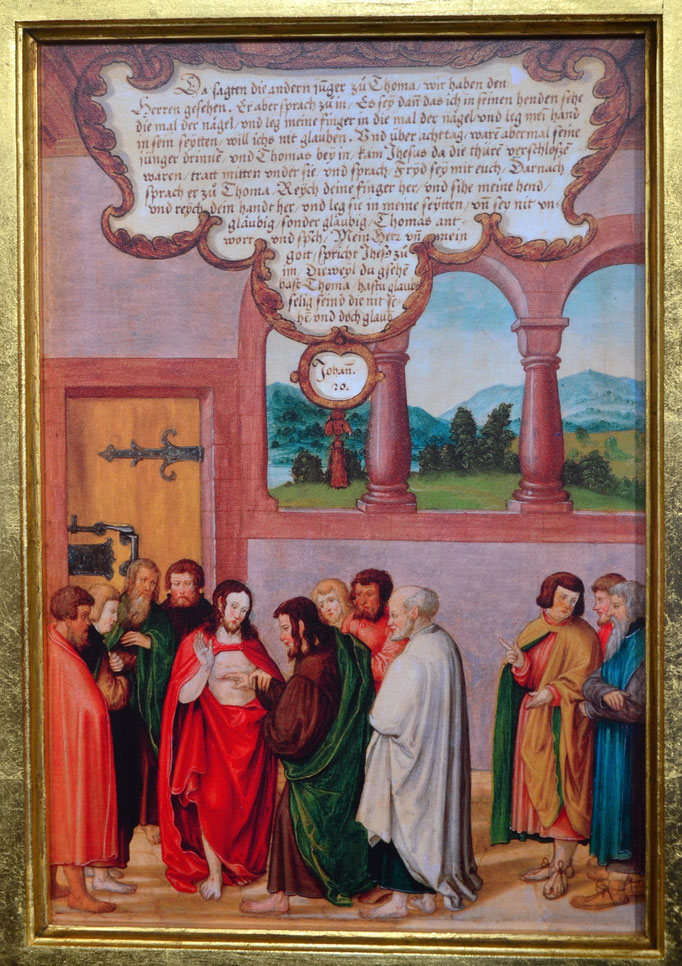 Da sagten die andern jũger zů Thoma, wir haben den
Herren gesehen. Er aber sprach zů in / Es sey dañ das ich in seinen henden sehe
die mal der nägel / und leg meine finger in die mal der nägel / und leg mei hand
in sein seytten / will ichs nit glauben. Vnd über acht tag / warẽ abermal seine
jünger drinnẽ / und Thomas bey in / kam Jhesus da die thürẽ verschloßẽ
waren / tratt mitten vnder sie / und sprach / Fryd sey mit euch / Darnach
sprach er zů Thoma. Reych deine finger her / und sihe meine hend /
vnd reych dein handt her / und leg sie in meine seytten / vñ sey nit vn-
gläubig / sonder gläubig / Thomas ant-
wort und spch / Mein Herr vñ mein
gott / spricht Jhesꝫ zů
im. Dieweyl du gsehen
hast Thoma / hastu glaubt
selig seind die nit se-
hẽ vnd doch glaubẽ
Johañ.
20.